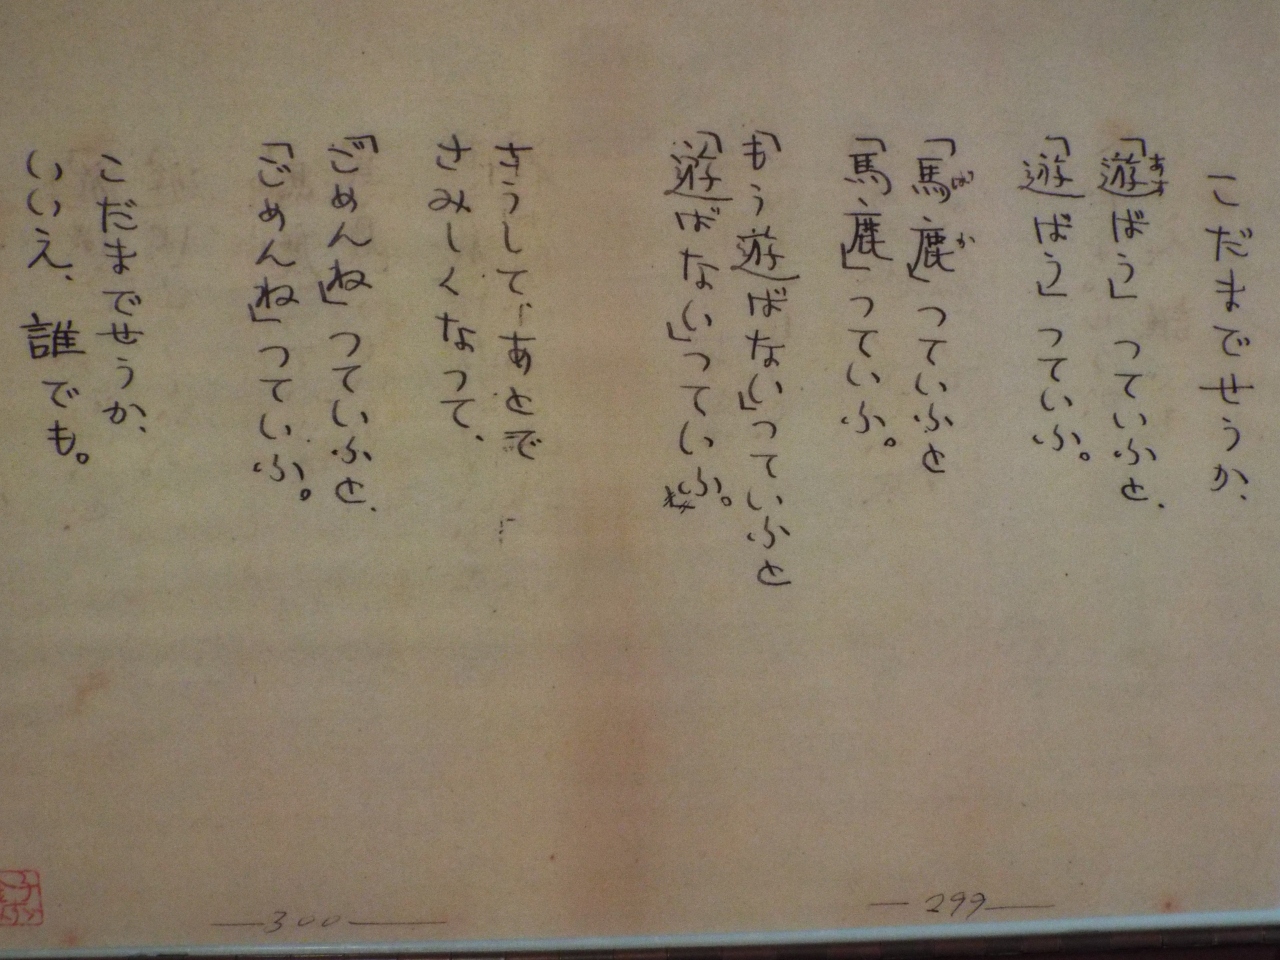 こだまでせうか、
「遊ばう」つていふと、
「遊ばう」つていふ。
「馬鹿」つていふと
「馬鹿」つていふ。
「もう遊ばない」つていふと
「遊ばない」つていふ。
さうして、あとで
さみしくなつて、
「ごめんね」つていふと、
「ごめんね」つていふ。
こだまでせうか、
いいえ、誰でも。
299
300